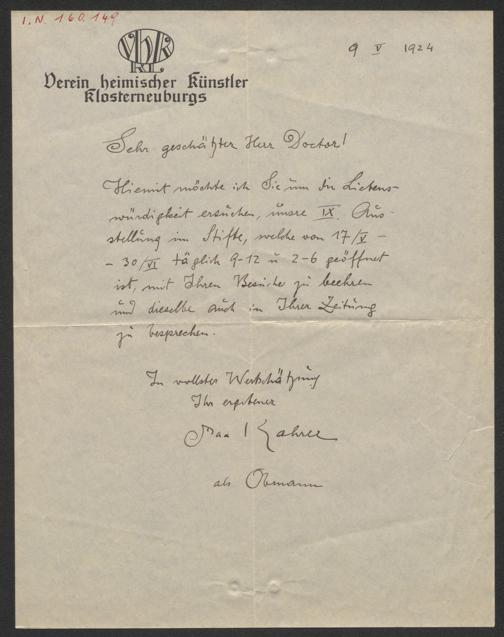 I.N. 160.149
VhK
KL
Verein heimischer Künstler
Klosterneuburgs
9 V 1924
Sehr geschätzter Herr Doctor!
Hiemit möchte ich Sie um die Liebens-
würdigkeit ersuchen, unsre IX. Aus-
stellung im Stifte, welche von 17/V -
- 30/VI täglich 9-12 u 2-6 geöffnet
ist, mit Ihren Besuche zu beehren
und dieselbe auch in Ihrer Zeitung
zu besprechen.
In vollster Wertschätzung
Ihr ergebener
Max Kahrer
als Obmann